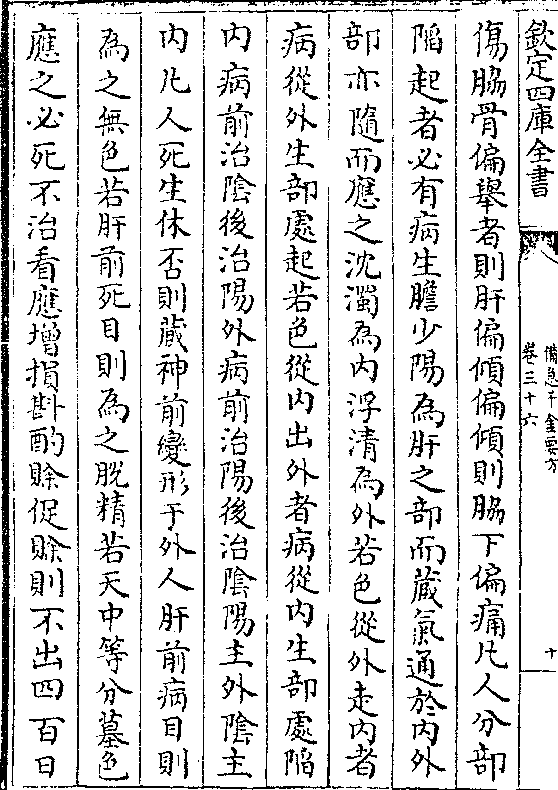 欽定四庫全書
備急千金要方
卷三十六
十
傷脇骨偏舉者則肝偏傾偏傾則脇下偏痛凡人分部
陷起者必有病生膽少陽為肝之部而蔵氣通於内外
部亦隨而應之沈濁為内浮清為外若色從外走内者
病從外生部處起若色從内出外者病從内生部處陷
内病前治陰後治陽外病前治陽後治陰陽主外陰主
内凡人死生休否則蔵神前變形于外人肝前病目則
為之無色若肝前死目則為之脱精若天中等分墓色
應之必死不治看應增損斟酌賖促賖則不出四百日